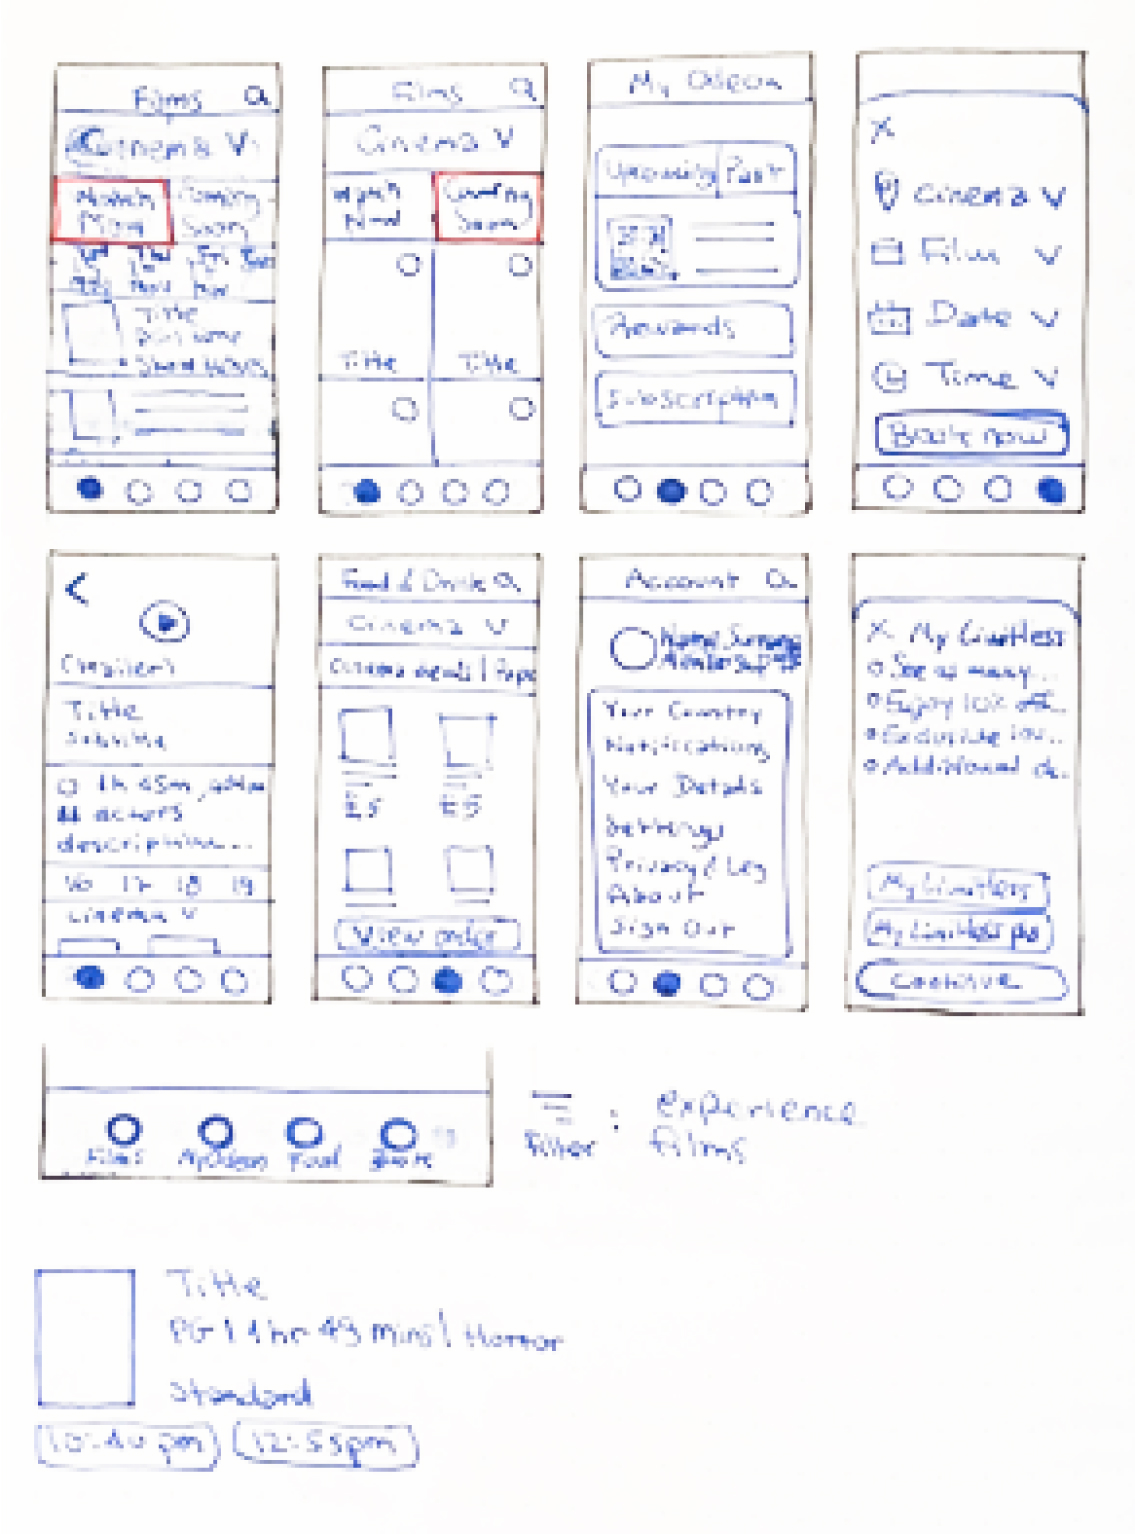 Films
Cinema V
Watch
Now
Coming
Soon
Title
Films
Cinema V
Watch
Now
Coming
Soon
Title Title
My Odeon
Upcoming Past
Rewards
Subscription
X
Cinema V
Film V
Date V
Time V
Book now
<
(trailer)
Title
Subtitle
1h 45m
actors
description...
16 17 18 19
cinema V
Food & Drink
Cinema V
Cinema meals
£5 £5
View order
Account
Name Surname
Membership
Your Country
Notifications
Your Details
Settings
Privacy & Leg
About
Sign Out
X My Limitless
See as many...
Enjoy 10% off..
Exclusive
Additional d..
My Limitless
My Limitless
Continue
Films MyOdeon Food
Filter : experience
films
Title
PG | 1 hr 49 mins | Horror
Standard
10:40 pm 12:55pm